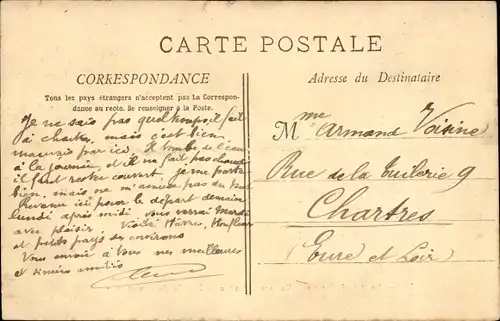 CARTE POSTALE
CORRESPONDANCE
Tous les pays étrangers n'acceptent pas la Correspon-
dance au recto. Se renseigner à la Poste.
Je ne sais pas quel temps il fait
à Chartres, mais c'est bien
mauvais par ici. Il tombe de l'eau
à la journée et il ne fait pas chaud
il faut rester couvert. Je me porte
bien, mais ne m'amuse pas du tout
ici pour le départ demain
lundi après midi. Vous verrai Mardi
avec plaisir. Visité Hâvre, Honfleur
et petits pays des environs
Vous envoie à Vous mes meilleures
et sincères amitiés
Adresse du Destinataire
Mme Armand Voisine
Rue de la Tuilerie 9
Chartres
Eure et Loir